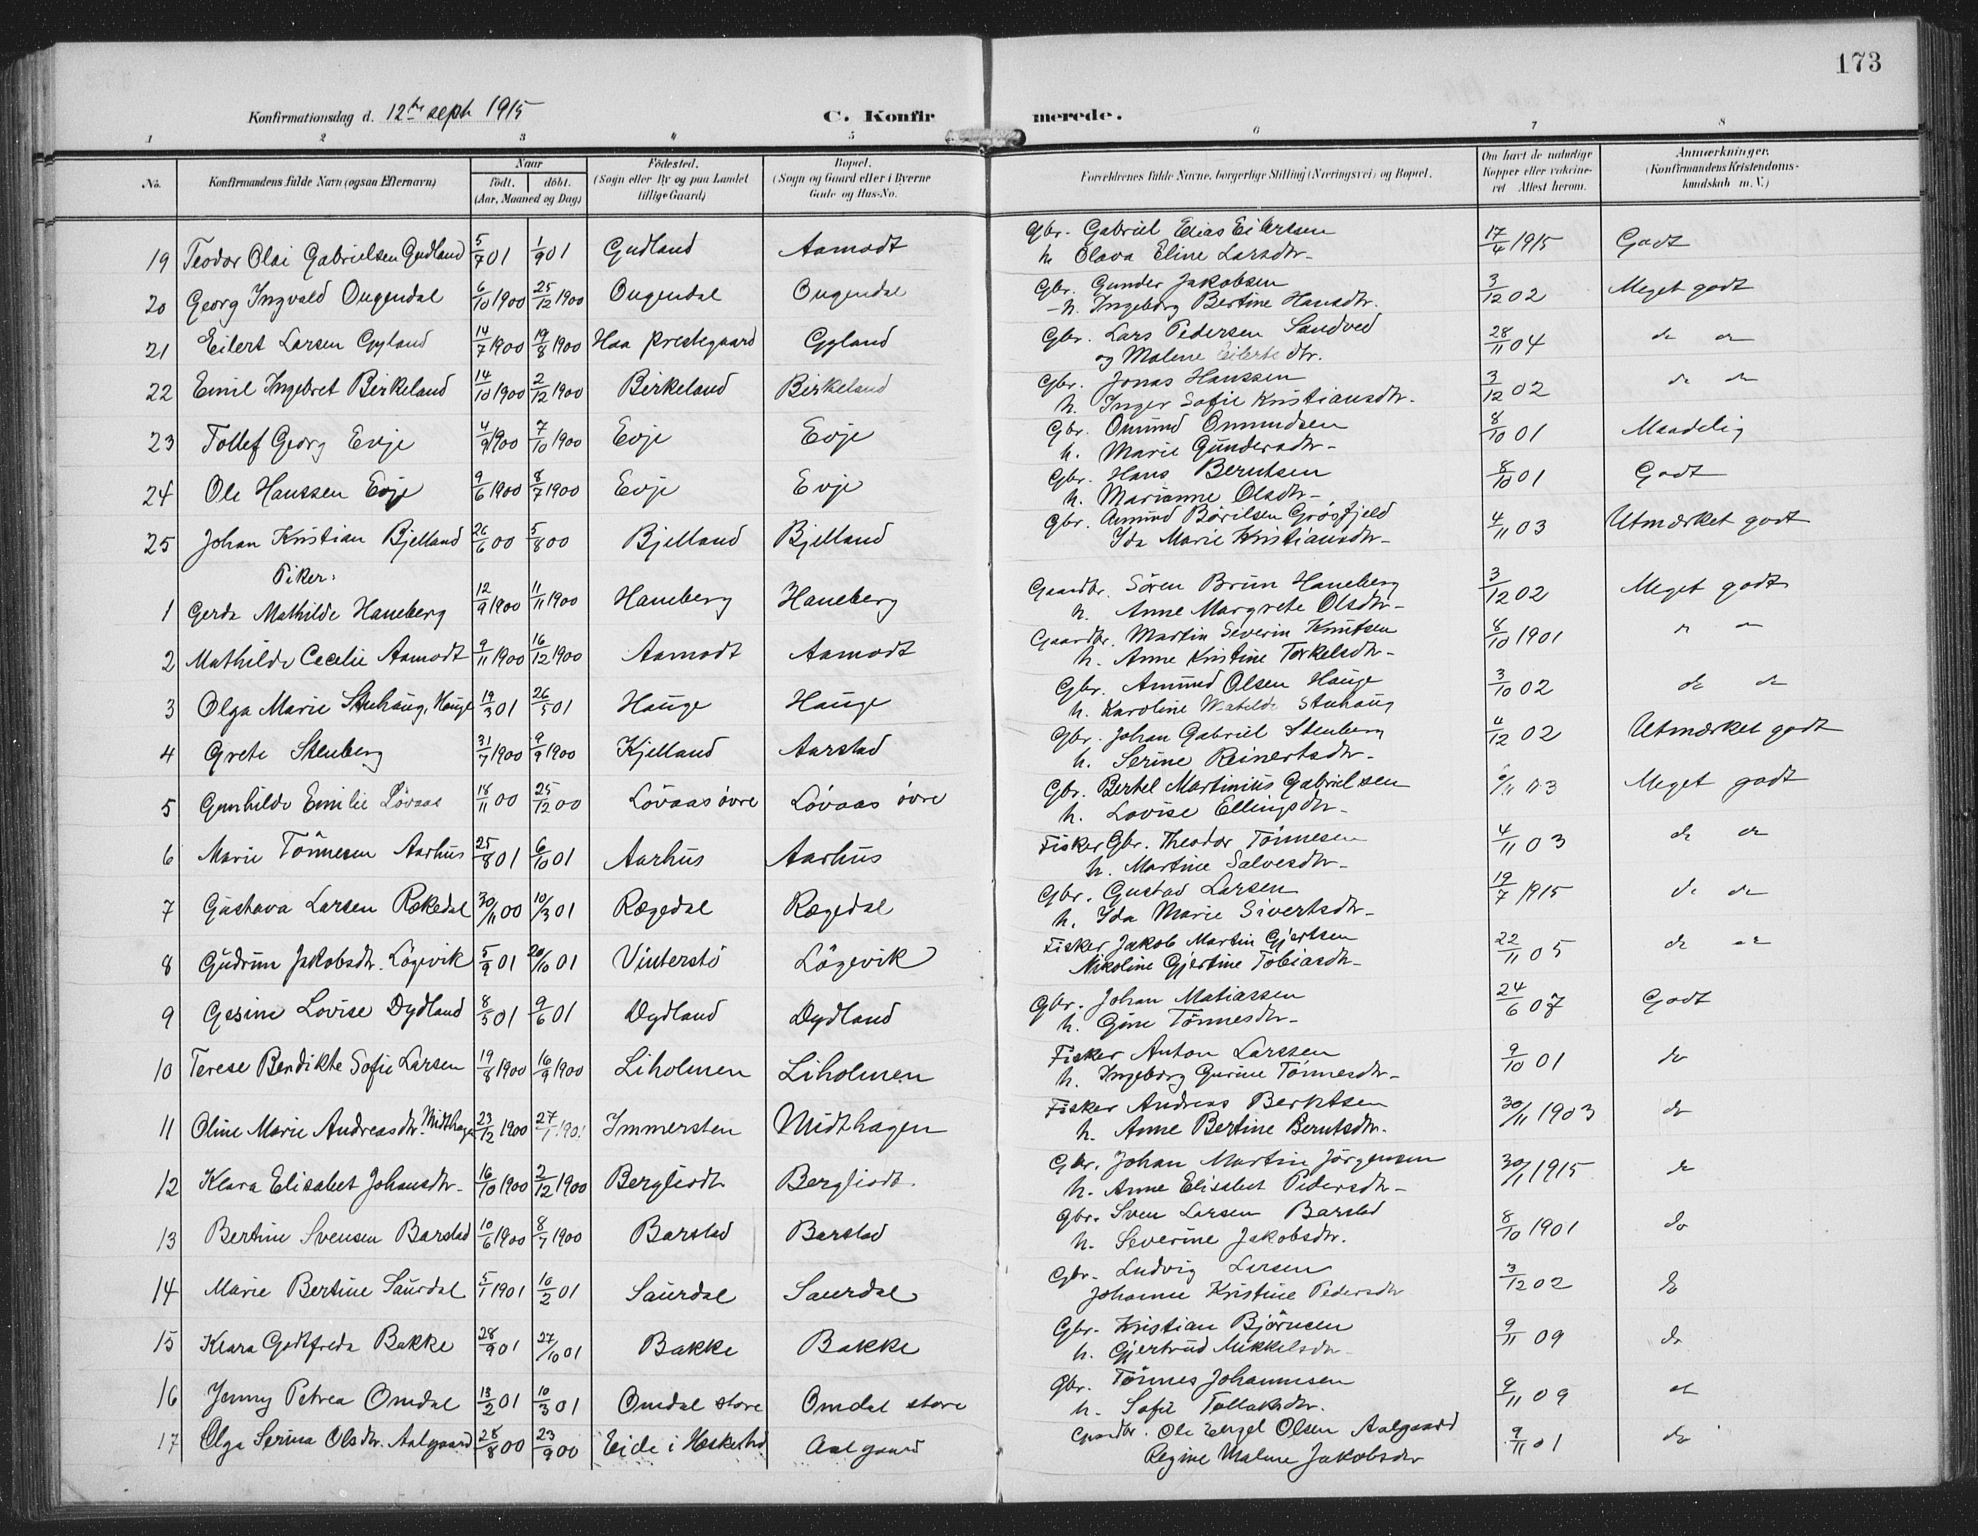 173
Konfirmationsdag d. 12te sept 1915 C. Konfir merede.
1 2 3 4 5 6 7 8
No. Konfirmandens fulde Navn (ogsaa Efternavn) Naar födt. döbt. (Aar, Maaned og Dag) Födested. (Sogn eller By og paa Landet tillige Gaard) Bopæl. (Sogn og Gaard eller i Byerne Gade og Hus-No. Forældrenes fulde Navne, borgerlige Stilling (Næringsvei) og Bopæl. Om havt de naturlige Kopper eller vakcineret Attest herom. Anmærkninger. (Konfirmandens Kristendomskundskab m. V.)
19 Teodor Olai Gabrielsen Gudland 5/7 01 1/9 01 Gudland Aamodt Gbr. Gabriel Elias Eilertsen 17/4 1915 Godt
h. Olava Eline Larsdtr.
20 Georg Ingvald Ougendal 6/10 1900 25/12 1900 Ougendal Ougendal Gbr. Gunder Jakobsen 3/12 02 Meget godt
h. Ingeborg Bertine Hansdtr.
21 Eilert Larsen Gyland 14/7 1900 19/8 1900 Haa prestegaard Gyland Gbr. Lars Pedersen Sandved 28/11 04 do do
og Malene Eilertsdtr.
22 Emil Ingebret Birkeland 14/10 1900 2/12 1900 Birkeland Birkeland Gbr. Jonas Hanssen 3/12 02 do do
h. Inger Sofie Kristiansdtr.
23 Tollef Georg Evje 4/9 1900 7/10 1900 Evje Evje Gbr. Omund Ommundsen 8/10 01 Maadelig
h. Marie Gundersdtr.
24 Ole Hanssen Evje 9/6 1900 8/7 1900 Evje Evje Gbr. Hans Berntsen 8/10 01 Godt
h. Marianne Olsdtr.
25 Johan Kristian Bjelland 26/6 00 5/8 00 Bjelland Bjelland Gbr. Amund Börilsen Grösfjeld 4/11 03 Utmærket godt
Ida Marie Kristiansdtr.
Piker:
1 Gerda Mathilde Haneberg 12/9 1900 11/11 1900 Haneberg Haneberg Gaardbr. Sören Brun Haneberg 3/12 02 Meget godt
h. Anne Margrete Olsdtr.
2 Mathilde Cecelie Aamodt 9/11 1900 16/12 1900 Aamodt Aamodt Gaardbr. Martin Severin Knutsen 8/10 1901 " "
h. Anne Kristine Torkelsdtr.
3 Olga Marie Stuhaug, Hauge 19/3 01 26/5 01 Hauge Hauge Gbr. Amund Olsen Hauge 3/10 02 do do
h. Karoline Matilde Stuhaug
4 Grete Stenberg 31/7 1900 9/9 1900 Kjelland Aarstad Gbr. Johan Gabriel Stenberg 4/12 02 Utmærket godt
h. Serine Reinertsdtr.
5 Gunhilde Emilie Lövaas 18/11 00 25/12 00 Lövaas övre Lövaas övre Gbr. Bertel Martinius Gabrielsen Meget godt
h. Lovise Ellingsdtr.
6 Marie Tönnesen Aarhus 25/8 01 6/10 01 Aarhus Aarhus Fisker Gbr. Theodor Tönnesen 4/11 03 do do
h. Martine Salvesdtr.
7 Gustava Larsen Rekedal 30/11 00 10/3 01 Rægedal Rægedal Gbr. Gustad Larsen 19/7 1915 do do
h. Ida Marie Sivertsdtr.
8 Gudrun Jakobsdtr. Lögevik 5/9 01 20/10 01 Vinterstö Lögevik Fisker Jakob Martin Gjertsen 22/11 05 do do
Nikoline Gjertine Tobiasdtr.
9 Gesine Lovise Dydland 8/5 01 9/6 01 Dydland Dydland Gbr. Johan Matiassen 24/6 07 Godt
h. Gine Tönnesdtr.
10 Terese Bendikte Sofie Larsen 19/8 1900 16/9 1900 Liholmen Liholmen Fisker Anton Larssen 9/10 01 do
h. Ingeborg Gurine Tönnesdtr.
11 Oline Marie Andreasdtr. Midthagen 23/12 1900 27/1 1901 Immersten Midthagen Fisker Andreas Berntsen 30/11 1903 do
h. Anne Bertine Berntsdtr.
12 Klara Elisabet Johansdtr. 16/10 1900 2/12 1900 Bergliodt Bergliodt. Gbr. Johan Martin Jörgensen 30/1 1915 do
h. Anne Elisabet Pedersdtr.
13 Bertine Svensen Barstad 10/6 1900 8/7 1900 Barstad Barstad Gbr. Sven Larsen Barstad 8/10 1901 do
h. Severine Jakobsdtr.
14 Marie Bertine Saurdal 5/1 1901 10/2 01 Saurdal Saurdal Gbr. Ludvig Larsen 3/12 02 do
Johanne Kristine Pedersdtr
15 Klara Godtfreda Bakke 28/9 01 27/10 01 Bakke Bakke Gbr. Kristian Björnsen 9/11 09 do
h. Gjertrud Mikkelsdtr.
16 Jenny Petrea Omdal 13/2 01 10/3 01 Omdal store Omdal store Gbr. Tönnes Johannesen 9/11 09 do
h. Sofie Tollaksdtr.
17 Olga Serina Olsdtr. Aalgaard 28/8 00 23/9 00 Eide i Heskestad Aalgaard Gaardbr. Ole Engel Olsen Aalgaard 9/11 01 do
Regine Malene Jakobsdtr